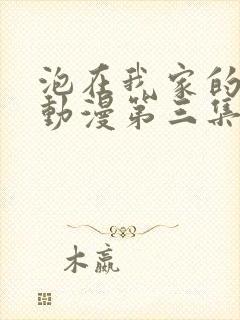 泡在我家的
動漫第三集
木嬴